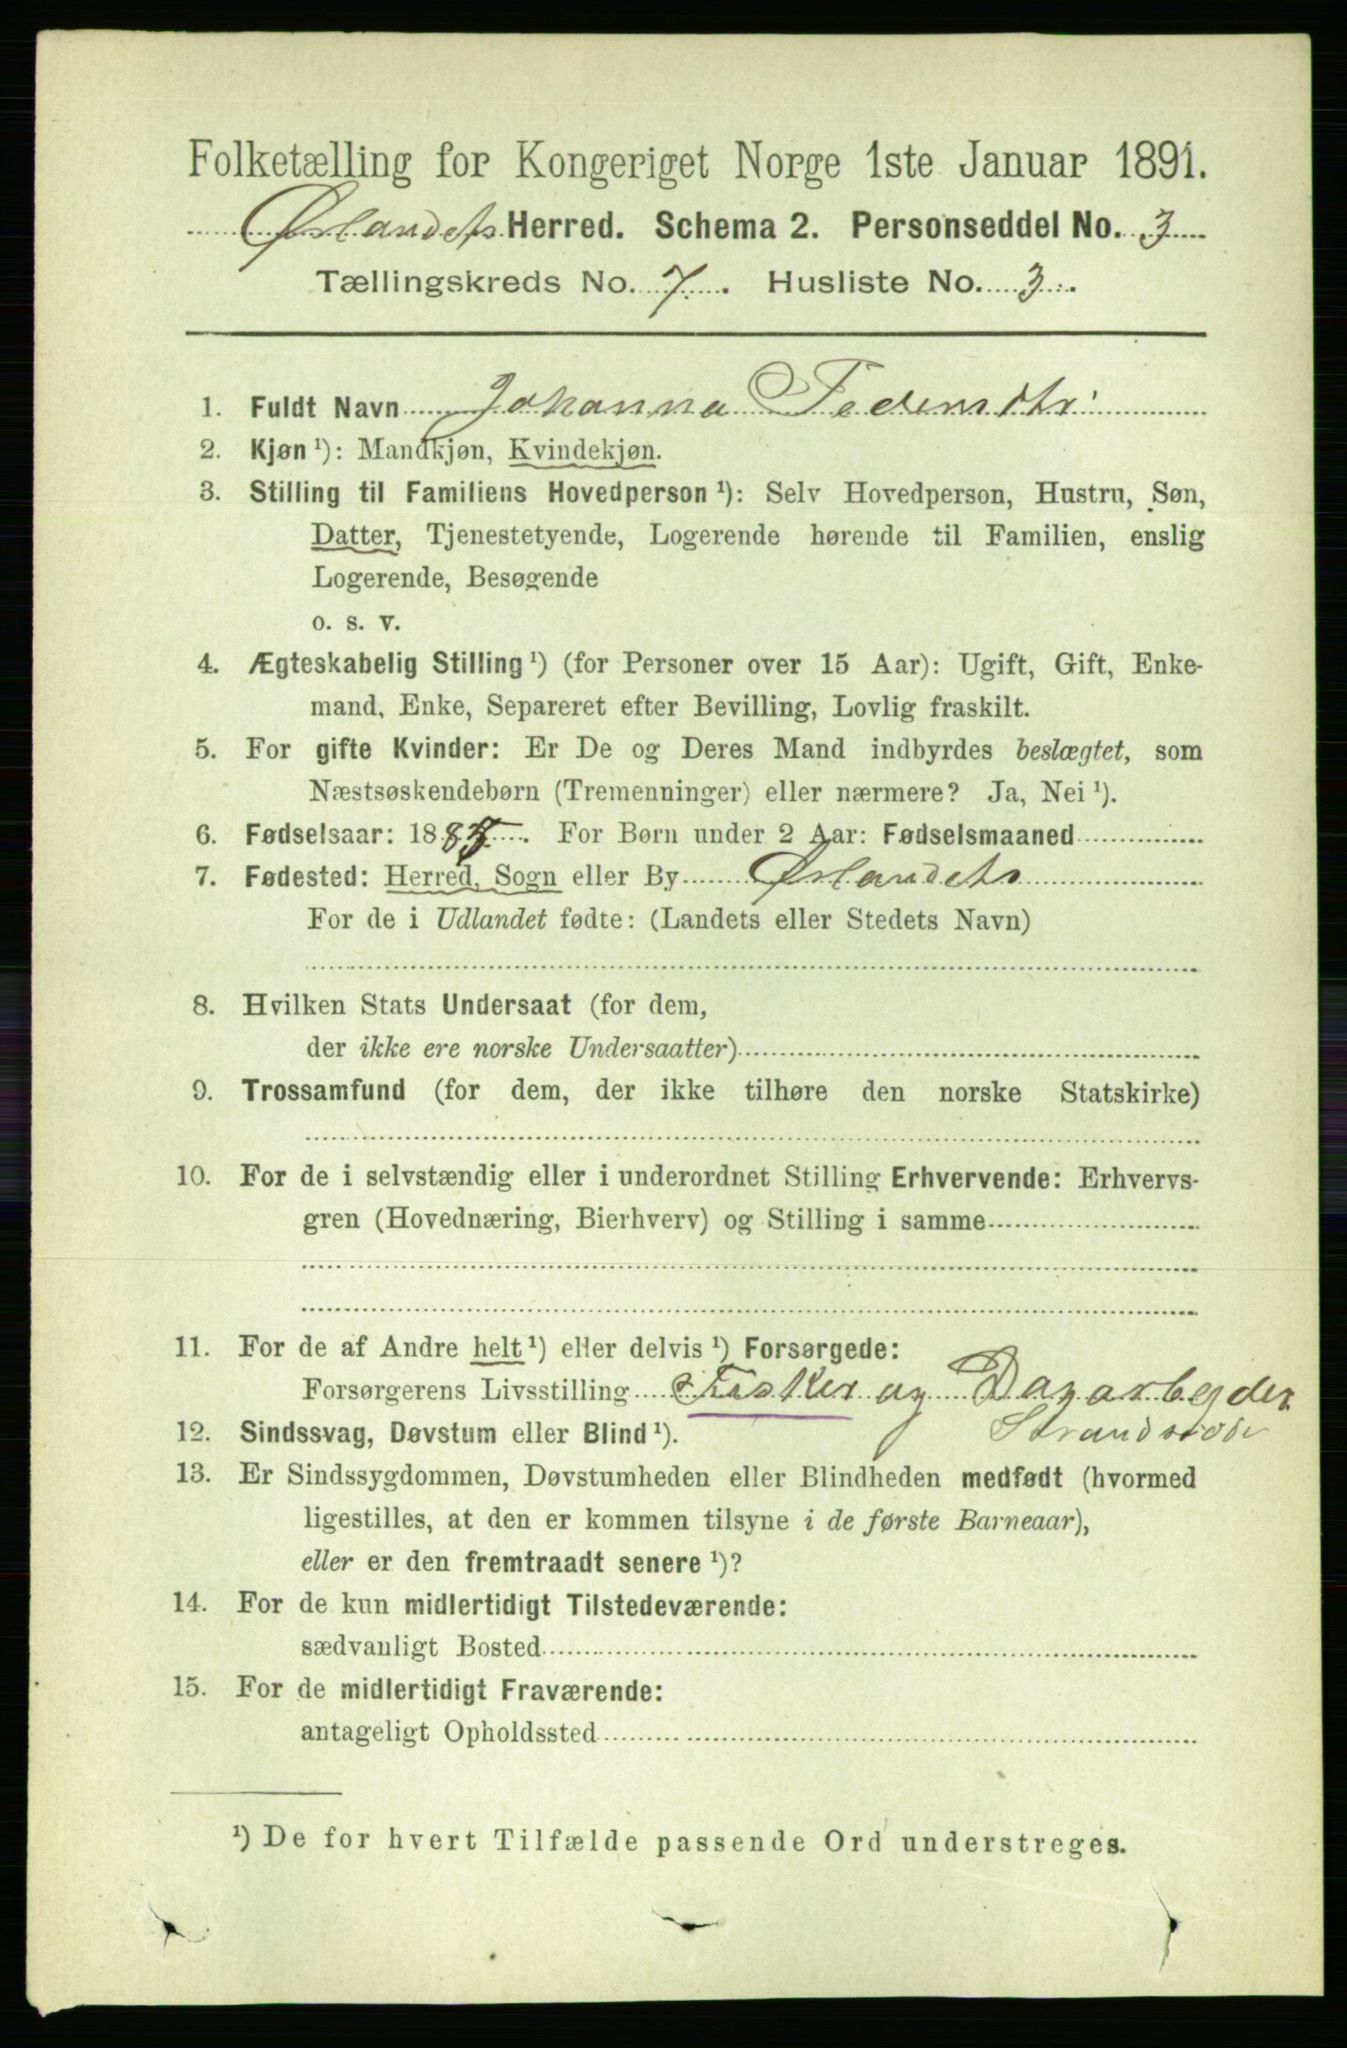 Folketælling for Kongeriget Norge 1ste Januar 1891.
Ørlandets Herred. Schema 2. Personseddel No. 3
Tællingskreds No. 7. Husliste No. 3.
1. Fuldt Navn Johanna
2. Kjøn ¹): Mandkjøn, Kvindekjøn.
3. Stilling til Familiens Hovedperson ¹): Selv Hovedperson, Hustru, Søn,
Datter, Tjenestetyende, Logerende hørende til Familien, enslig
Logerende, Besøgende
o. s. v.
4. Ægteskabelig Stilling ¹) (for Personer over 15 Aar): Ugift, Gift, Enke-
mand, Enke, Separeret efter Bevilling, Lovlig fraskilt.
5. For gifte Kvinder: Er De og Deres Mand indbyrdes beslægtet, som
Næstsøskendebørn (Tremenninger) eller nærmere? Ja, Nei ¹).
6. Fødselsaar: 18 . For Børn under 2 Aar: Fødselsmaaned
7. Fødested: Herred, Sogn eller By Ørlandets
For de i Udlandet fødte: (Landets eller Stedets Navn)
8. Hvilken Stats Undersaat (for dem,
der ikke ere norske Undersaatter)
9. Trossamfund (for dem, der ikke tilhøre den norske Statskirke)
10. For de i selvstændig eller i underordnet Stilling Erhvervende: Erhvervs-
gren (Hovednæring, Bierhverv) og Stilling i samme
11. For de af Andre helt ¹) eller delvis ¹) Forsørgede:
Forsørgerens Livsstilling Fisker og Dagarbejder
12. Sindssvag, Døvstum eller Blind ¹).
13. Er Sindssygdommen, Døvstumheden eller Blindheden medfødt (hvormed
ligestilles, at den er kommen tilsyne i de første Barneaar),
eller er den fremtraadt senere ¹)?
14. For de kun midlertidigt Tilstedeværende:
sædvanligt Bosted
15. For de midlertidigt Fraværende:
antageligt Opholdssted
¹) De for hvert Tilfælde passende Ord understreges.